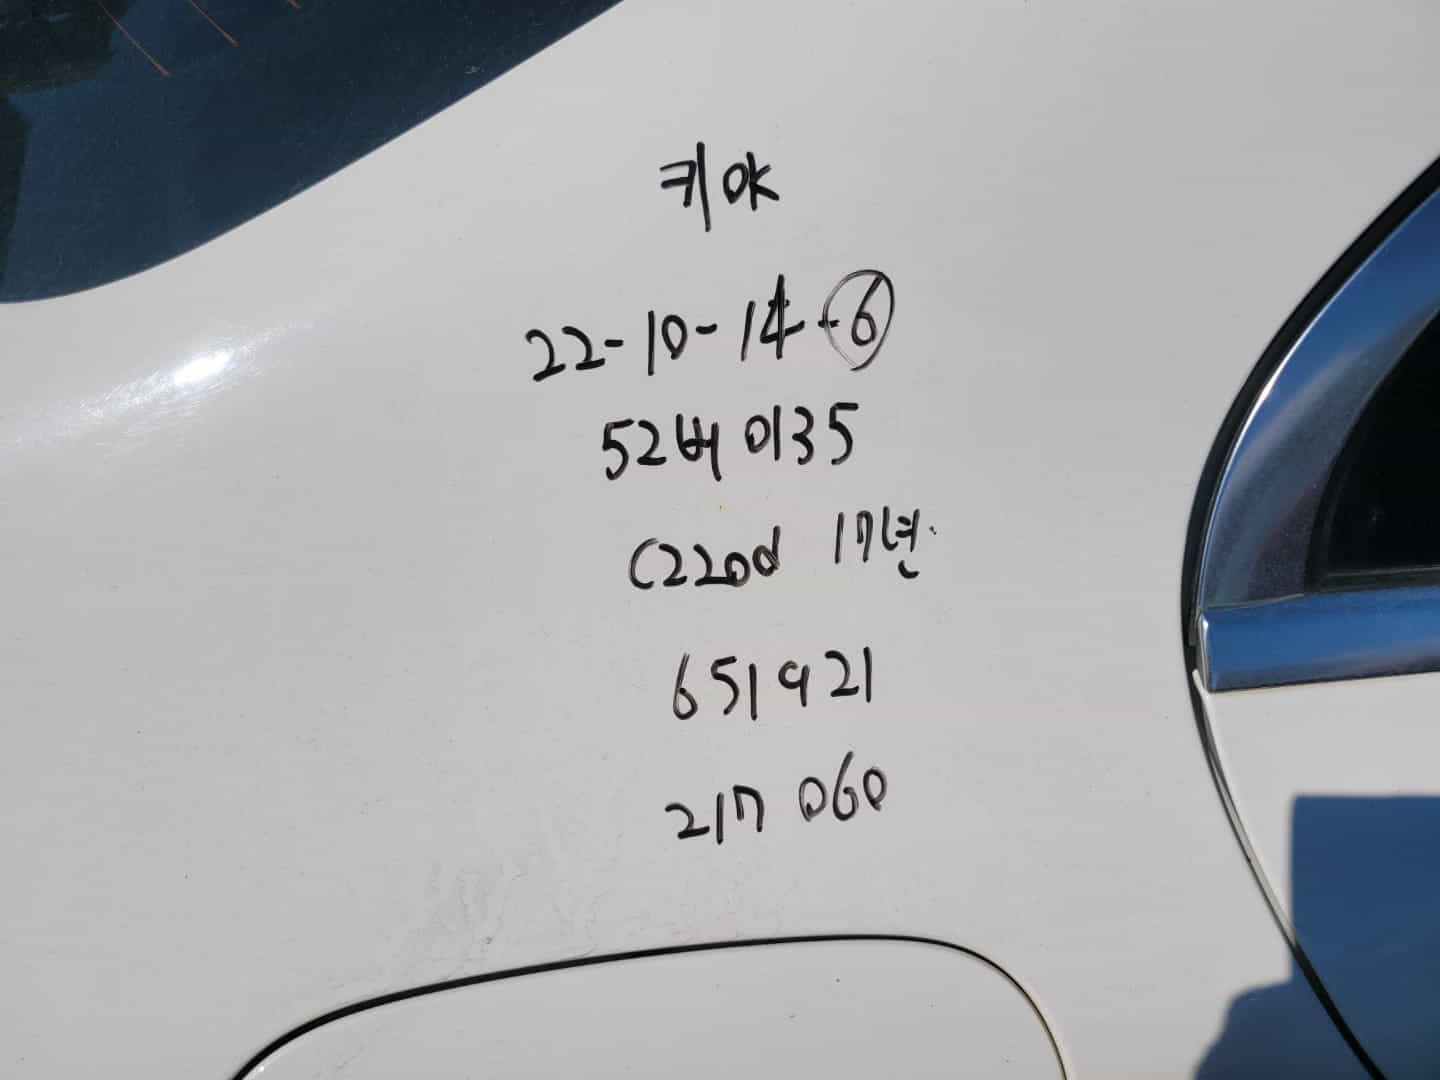 키 OK
22-10-14-6
52버 0135
C220d 17년.
651921
217 060